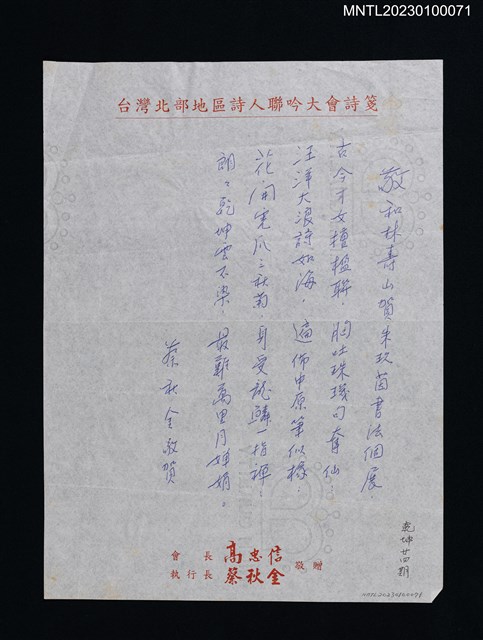 MNTL20230100071
台灣北部地區詩人聯吟大會詩箋
敬和林壽山賀朱玖茵書法個展
古今才女擅楹聯，胸吐珠璣句奪仙；
汪洋大浪詩如海，遍佈中原筆似椽；
花開虎爪三秋菊，身受龍驤一指禪；
朗々乾坤雲不染 最難萬里月嬋娟。
蔡秋金敬賀
乾坤廿四期
會長 高忠信
執行長 蔡秋金 敬贈
MNTL20230100071